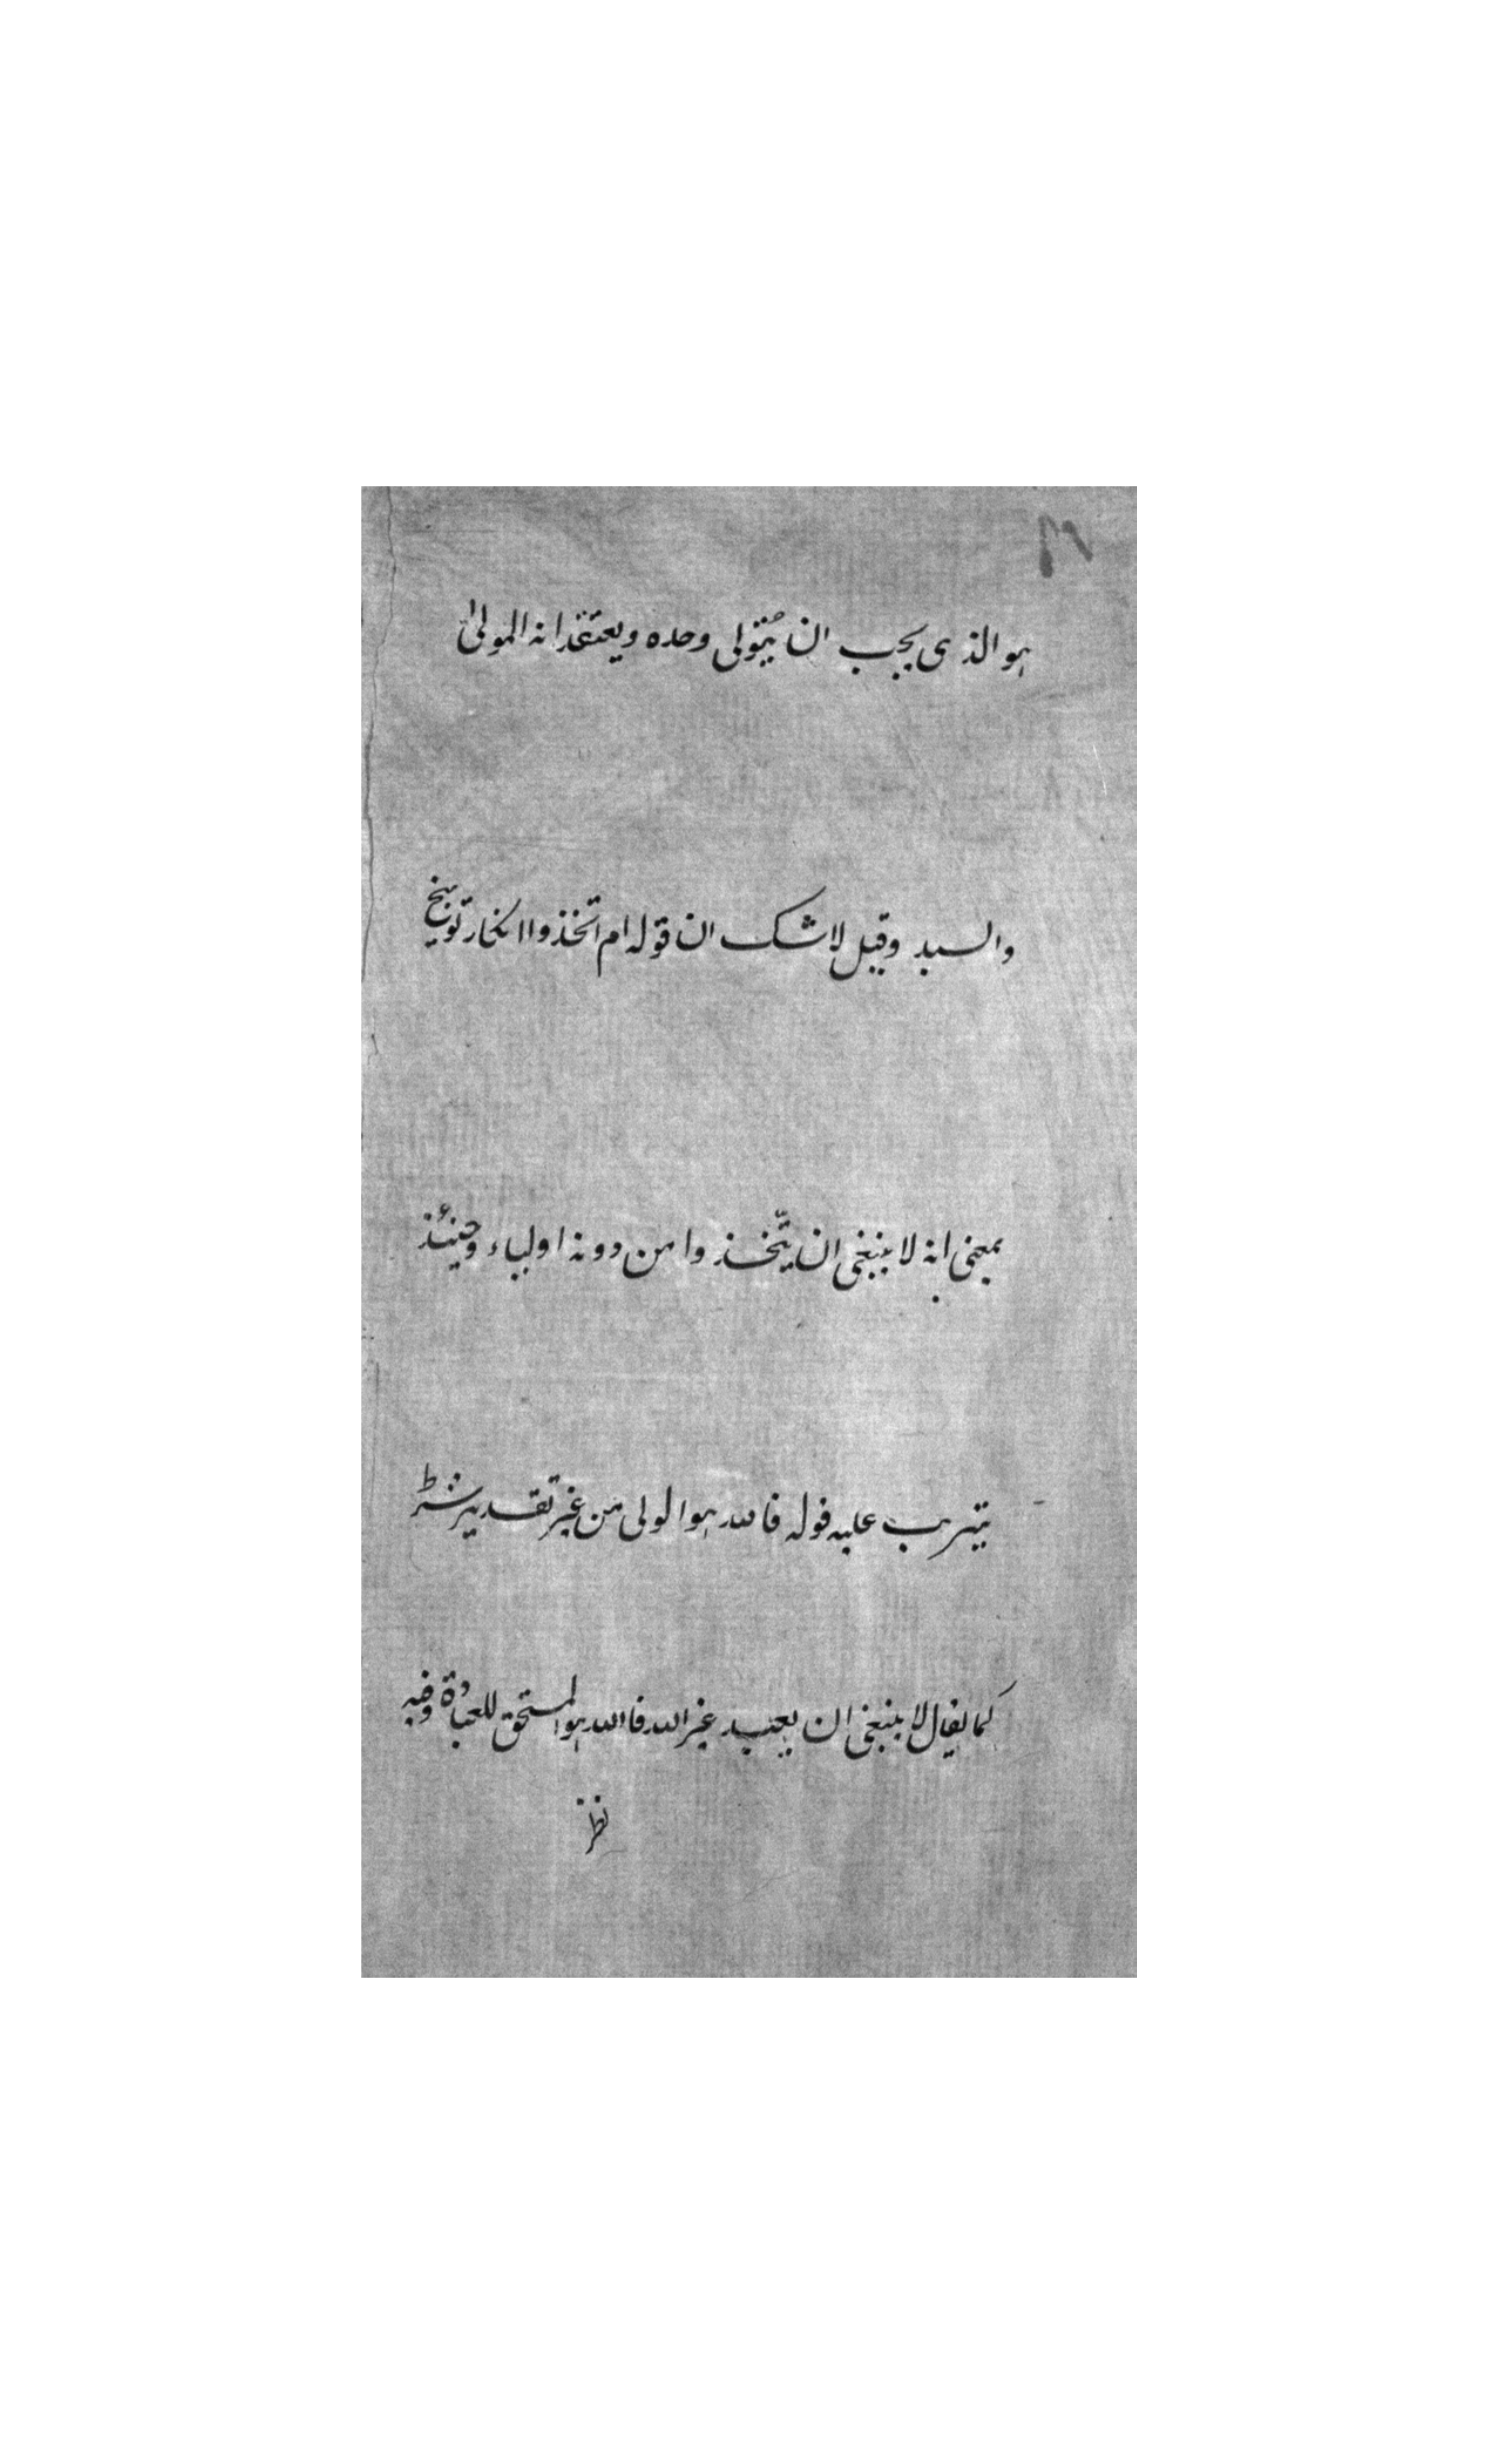 هو الذى يجب ان يُتولى وحده ويعتقد انه المولى
والسيد وقيل لا شك ان قوله ام اتخذوا انكار توبيخ
بمعنى انه لا ينبغى ان يتّخذوا من دونه اولياء وحينئذ
يترتب عليه قوله فالله هو الولى من غير تقدير شرط
كما يقال لا ينبغى ان يعبد غير الله فالله هو المستحق للعبادة وفيه
نظر